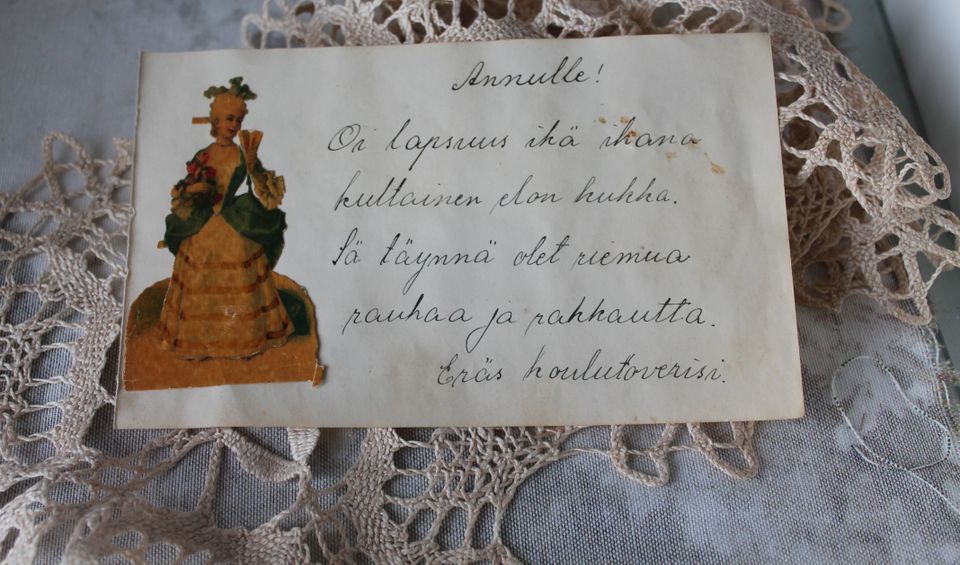 Annulle!
Oi lapsuus ikä ihana
kultainen elon kukka.
Sä täynnä olet riemua
rauhaa ja rakkautta.
Eräs koulutoverisi.